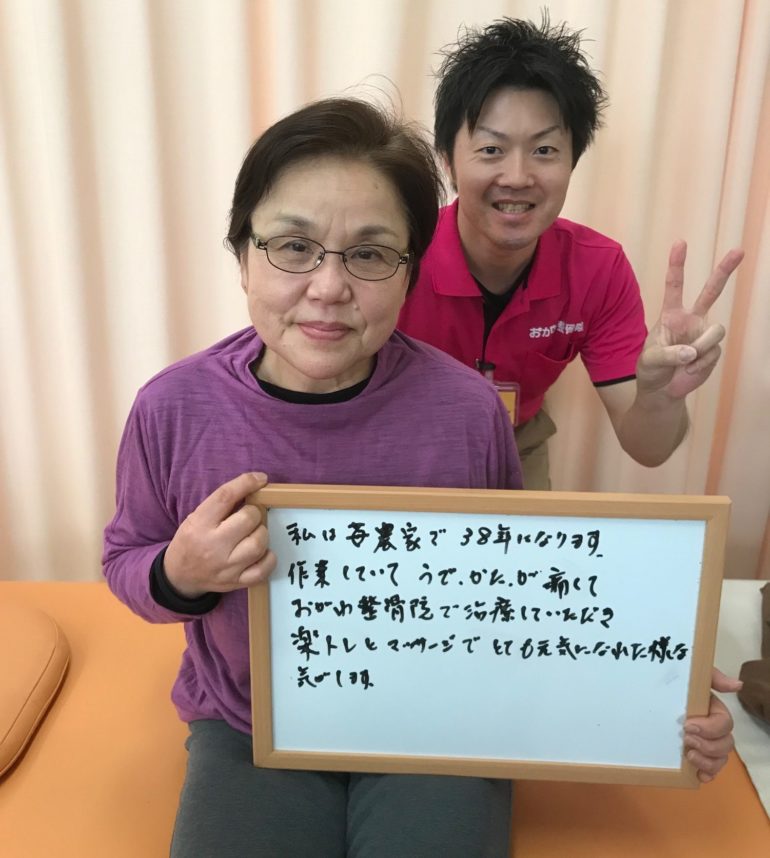 おがわ整骨院
私は苺農家で 38年になります。
作業していて うで、かた、が 痛くて
おがわ整骨院で治療していただき
楽トレとマッサージで とても元気になれた様な
気がします。